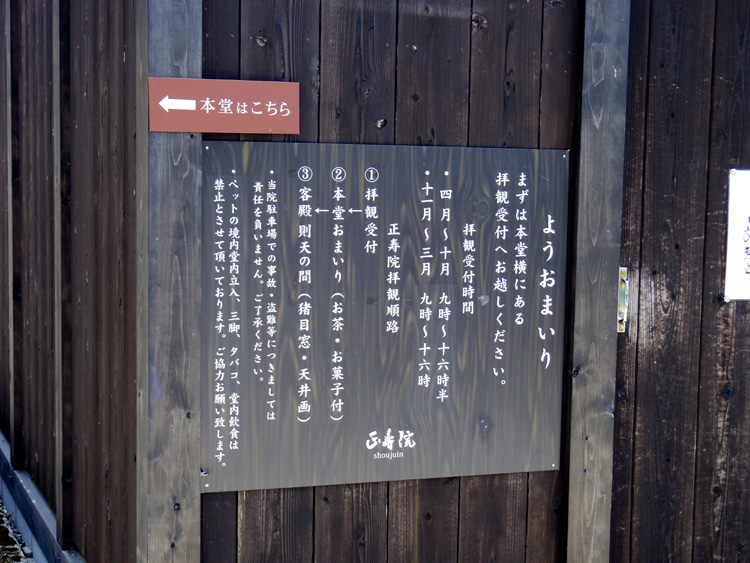 本堂はこちら
ようおまいり
まずは本堂横にある
拝観受付へお越しください。
拝観受付時間
・四月～十月　九時～十六時半
・十一月～三月　九時～十六時
正寿院拝観順路
①拝観受付
↓
②本堂おまいり（お茶・お菓子付）
↓
③客殿 則天の間（猪目窓・天井画）
・当院駐車場での事故・盗難等につきましては
責任を負いません。ご了承ください。
・ペットの境内堂内立入、三脚、タバコ、堂内飲食は
禁止とさせて頂いております。ご協力お願い致します。
正寿院
shoujuin